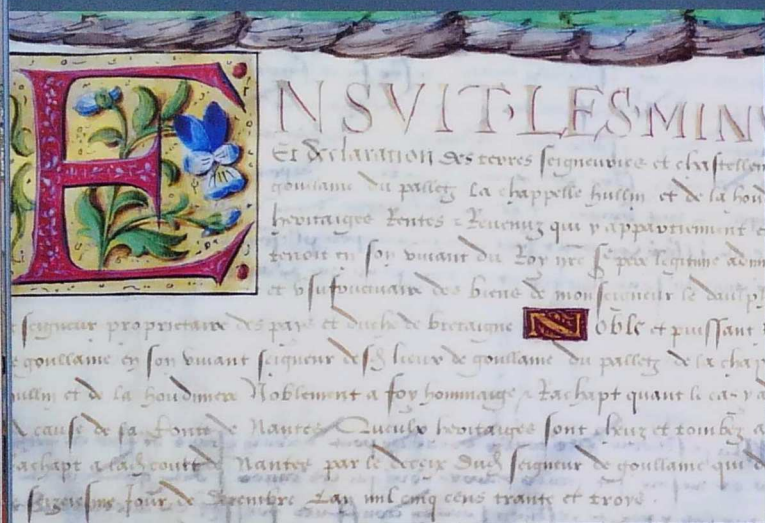 ENSVIT·LES·MINV
Et declaration des terres seigneuries et chastellen
goullaine du palletz La chappelle hullin et de la hou
heritaiges Rentes & Revenuz qui y appartiennent
tenoit en son vivant du Roy nre Sr pere legitime adm
et vsufructuaire des biens de monseigneur le daulph
seigneur proprietaire des pays et duche de bretaigne Noble et puissant
goullaine en son vivant seigneur desd lieux de goullaine du palletz de la chap
hullin et de la houdiniere Noblement a foy hommaige & Rachapt quant le cas y a
A cause de sa Conte de Nantes Queulx heritaiges sont cheuz et tombez a
rachapt a lad court de Nantes par le deceix dud seigneur de goullaine qui d
le seziesme jour de Decembre Lan mil cinq cens trante et troys